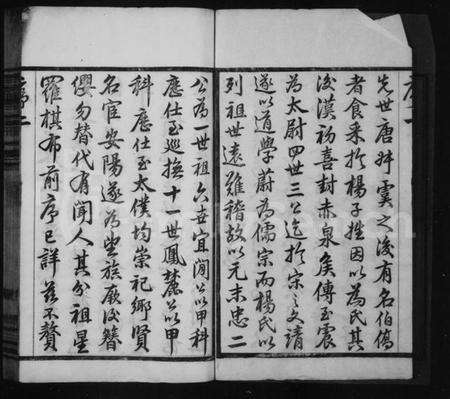 序一
先世唐叔虞之後有名伯僑
者食采於楊子姓因以為氏其
後漢初喜封赤泉侯傳至震
為太尉四世三公迄於宋之文靖
遂以道學蔚為儒宗而楊氏以
列祖世遠難稽故以元末忠二
公為一世祖六世宜閒公以甲科
應仕至巡撫十一世鳳麓公以甲
科應仕至太僕均崇祀鄉賢
名宦安陽遂為望族厥後簪
纓勿替代有聞人其分祖星
羅棋布前序已詳茲不贅
序二